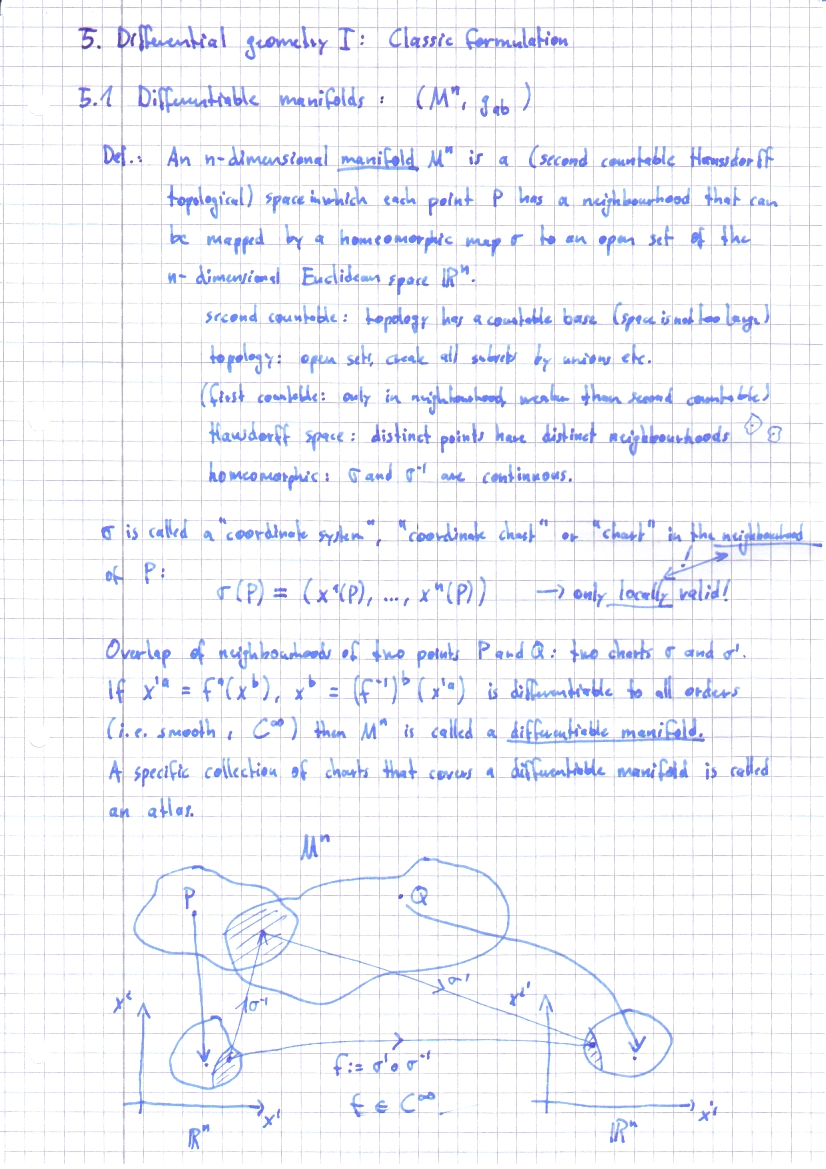 5. Differential geometry I: Classic formulation
5.1 Differentiable manifolds: (Mⁿ, g_ab)
Def.: An n-dimensional manifold Mⁿ is a (second countable Hausdorff
topological) space in which each point P has a neighbourhood that can
be mapped by a homeomorphic map σ to an open set of the
n-dimensional Euclidean space ℝⁿ.
second countable: topology has a countable base (space is not too large)
topology: open sets, create all subsets by unions etc.
(first countable: only in neighbourhood, weaker than second countable)
Hausdorff space: distinct points have distinct neighbourhoods
homeomorphic: σ and σ⁻¹ are continuous.
σ is called a "coordinate system", "coordinate chart" or "chart" in the neighbourhood
!
of P:
σ(P) = (x¹(P), ..., xⁿ(P)) → only locally valid!
Overlap of neighbourhoods of two points P and Q: two charts σ and σ'.
If x'ᵃ = fᵃ(xᵇ), xᵇ = (f⁻¹)ᵇ(x'ᵃ) is differentiable to all orders
(i.e. smooth, C^∞) then Mⁿ is called a differentiable manifold.
A specific collection of charts that covers a differentiable manifold is called
an atlas.
Mⁿ
P Q
σ⁻¹ σ'
xⁱ xⁱ'
f := σ' ∘ σ⁻¹
f ∈ C^∞
x¹ x¹'
ℝⁿ ℝⁿ